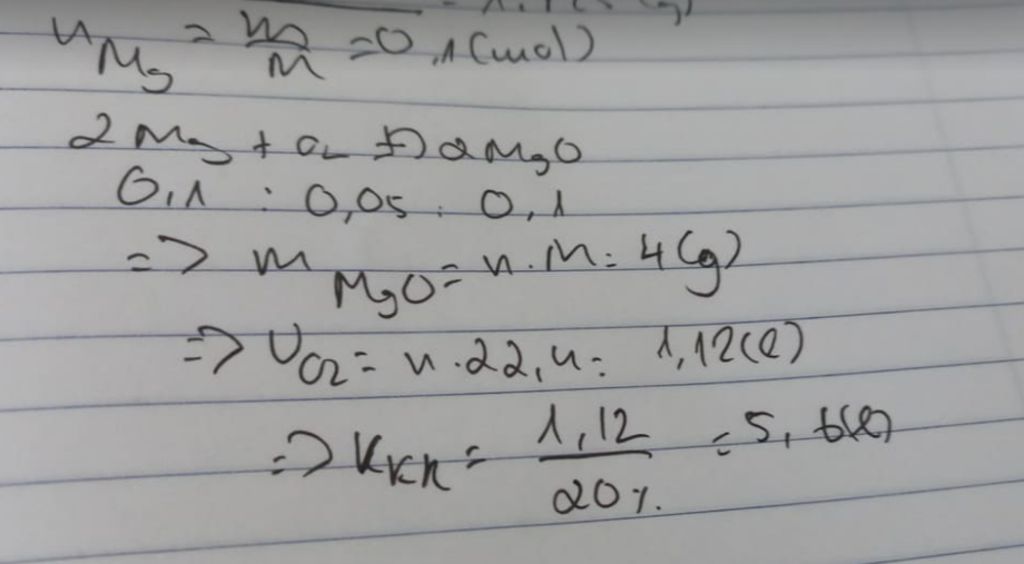 n Mg = m/M = 0,1 (mol)
2Mg + O2 t°→ 2MgO
0,1 : 0,05 : 0,1
=> m MgO = n.M = 4(g)
=> VO2 = n.22,4 = 1,12(l)
=> Vkk = 1,12/20% = 5,6(l)